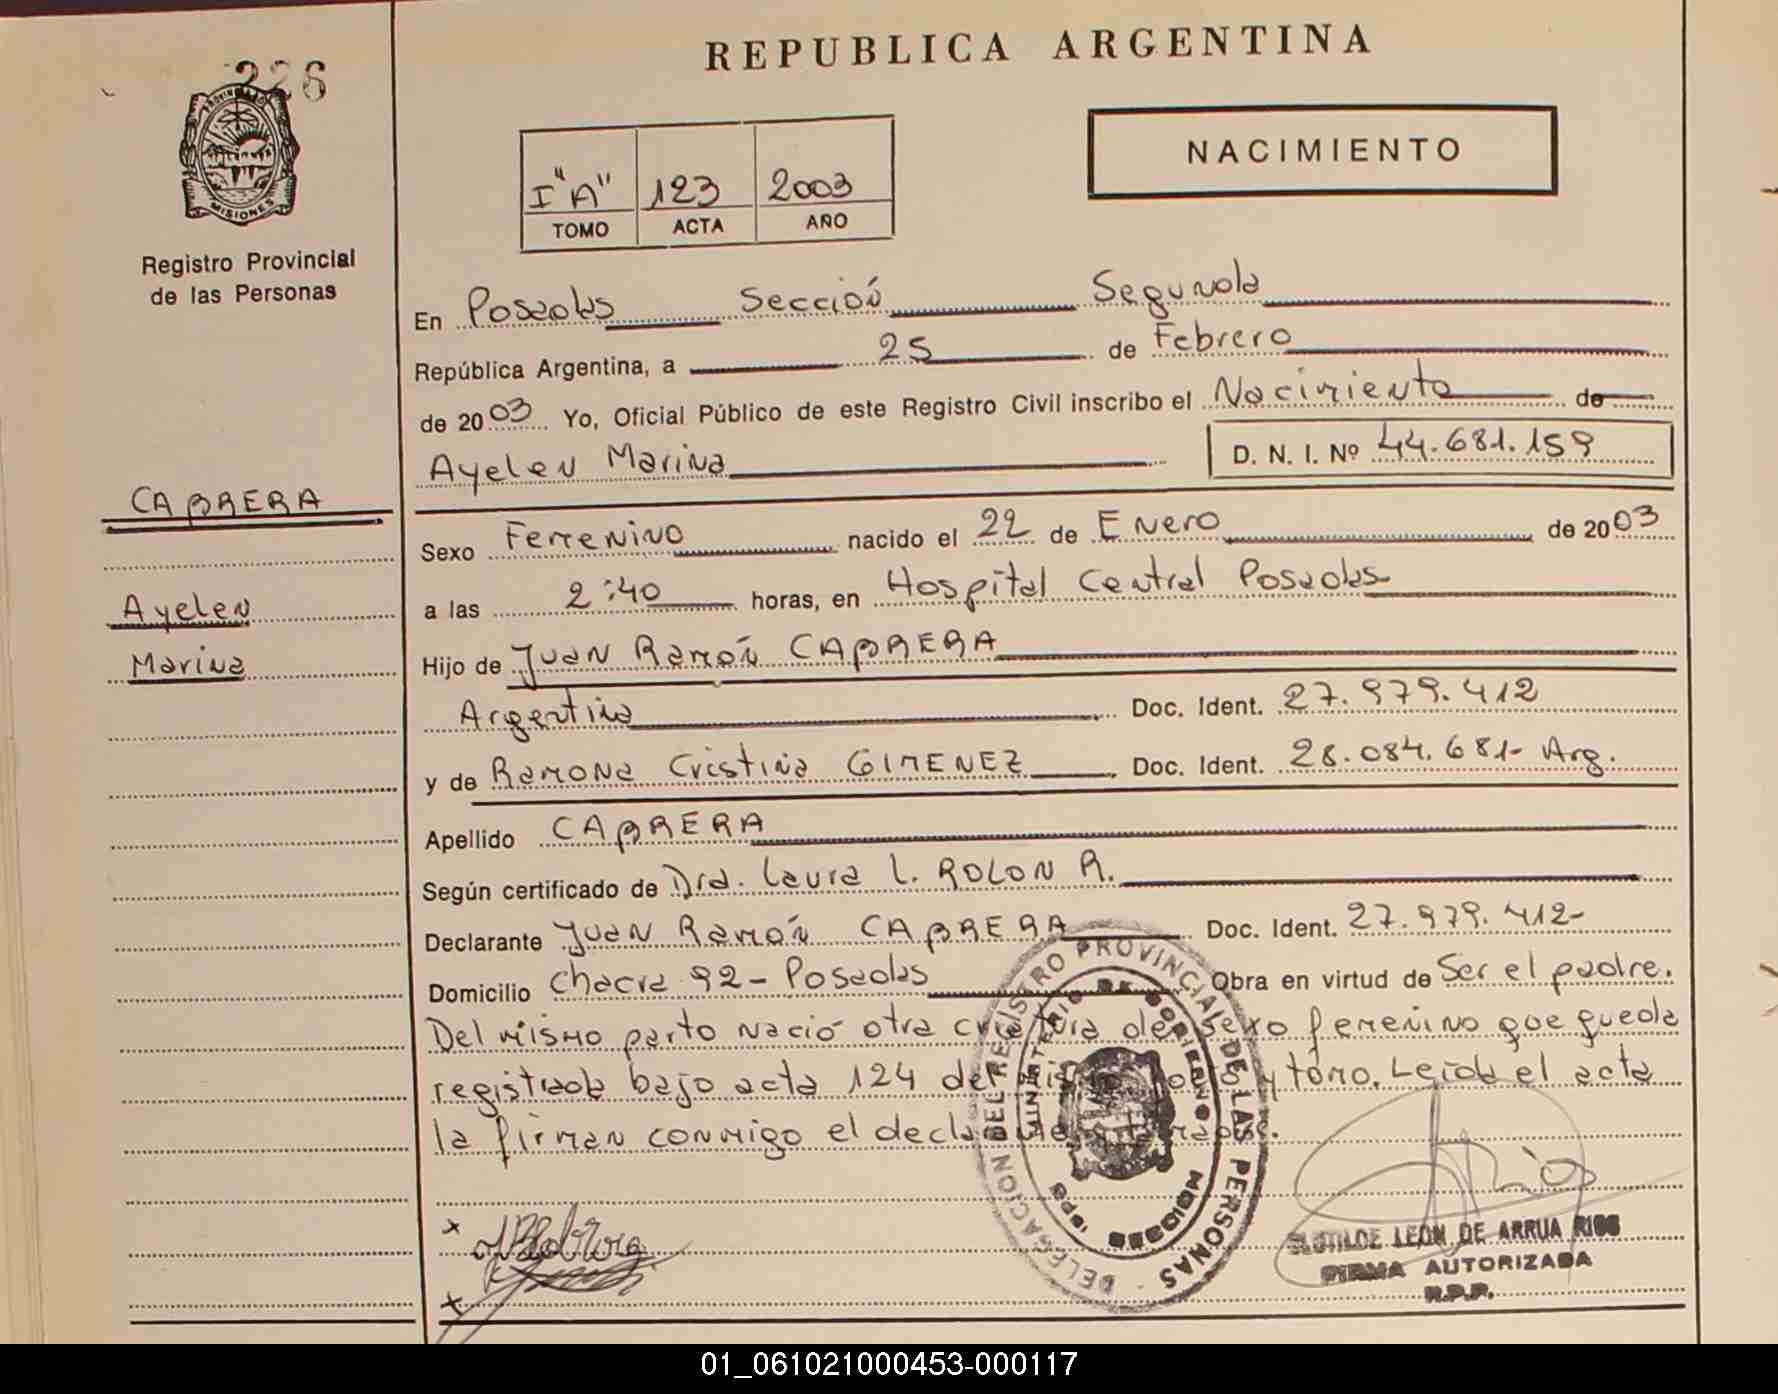 226
PROVINCIA DE
MISIONES
Registro Provincial
de las Personas
CABRERA
Ayelen
Marina
REPUBLICA ARGENTINA
NACIMIENTO
I "A" 123 2003
TOMO ACTA AÑO
En Posadas Sección Segunda
República Argentina, a 25 de Febrero
de 2003 Yo, Oficial Público de este Registro Civil inscribo el Nacimiento de
Ayelen Marina D. N. I. Nº 44.681.159
Sexo Femenino nacido el 22 de Enero de 2003
a las 2:40 horas, en Hospital Central Posadas
Hijo de Juan Ramón CABRERA
Argentina Doc. Ident. 27.979.412
y de Ramona Cristina GIMENEZ Doc. Ident. 28.084.681- Arg.
Apellido CABRERA
Según certificado de Dra. Laura L. ROLON R.
Declarante Juan Ramón CABRERA Doc. Ident. 27.979.412-
Domicilio Chacra 92 - Posadas Obra en virtud de Ser el padre.
Del mismo parto nació otra criatura del sexo femenino que queda
registrada bajo acta 124 del mismo y tomo. Leída el acta
la firman conmigo el declarante
DELEGACION DEL REGISTRO PROVINCIAL DE LAS PERSONAS
MINISTERIO DE GOBIERNO
MISIONES
CLOTILDE LEON DE ARRUA RIOS
FIRMA AUTORIZADA
R.P.P.
01_061021000453-000117